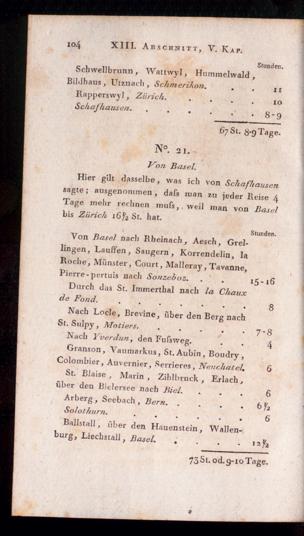 104 XIII. Abschnitt, V. Kap.
Stunden.
Schwellbrunn, Wattwyl, Hummelwald,
Bildhaus, Utznach, Schmerikon. . . 11
Rapperswyl, Zürich. . . . 10
Schafhausen. . . . . 8-9
67 St. 8-9 Tage.
N°. 21.
Von Basel.
Hier gilt dasselbe, was ich von Schafhausen
sagte; ausgenommen, daſs man zu jeder Reise 4
Tage mehr rechnen muſs, weil man von Basel
bis Zürich 16½ St. hat.
Stunden.
Von Basel nach Rheinach, Aesch, Grel-
lingen, Lauffen, Saugern, Korrendelin, la
Roche, Münster, Court, Malleray, Tavanne,
Pierre-pertuis nach Sonzeboz. . . 15-16
Durch das St. Immerthal nach la Chaux
de Fond. . . . . 8
Nach Locle, Brevine, über den Berg nach
St. Sulpy, Motiers. . . . 7-8
Nach Yverdun, den Fuſsweg. . . 4
Granson, Vaumarkus, St. Aubin, Boudry,
Colombier, Auvernier, Serrieres, Neuchatel. 6
St. Blaise, Marin, Zihlbruck, Erlach,
über den Bielersee nach Biel. . . 6
Arberg, Seebach, Bern. . . . 6½
Solothurn. . . . . 6
Ballstall, über den Hauenstein, Wallen-
burg, Liechstall, Basel. . . . 12½
73 St. od. 9-10 Tage.